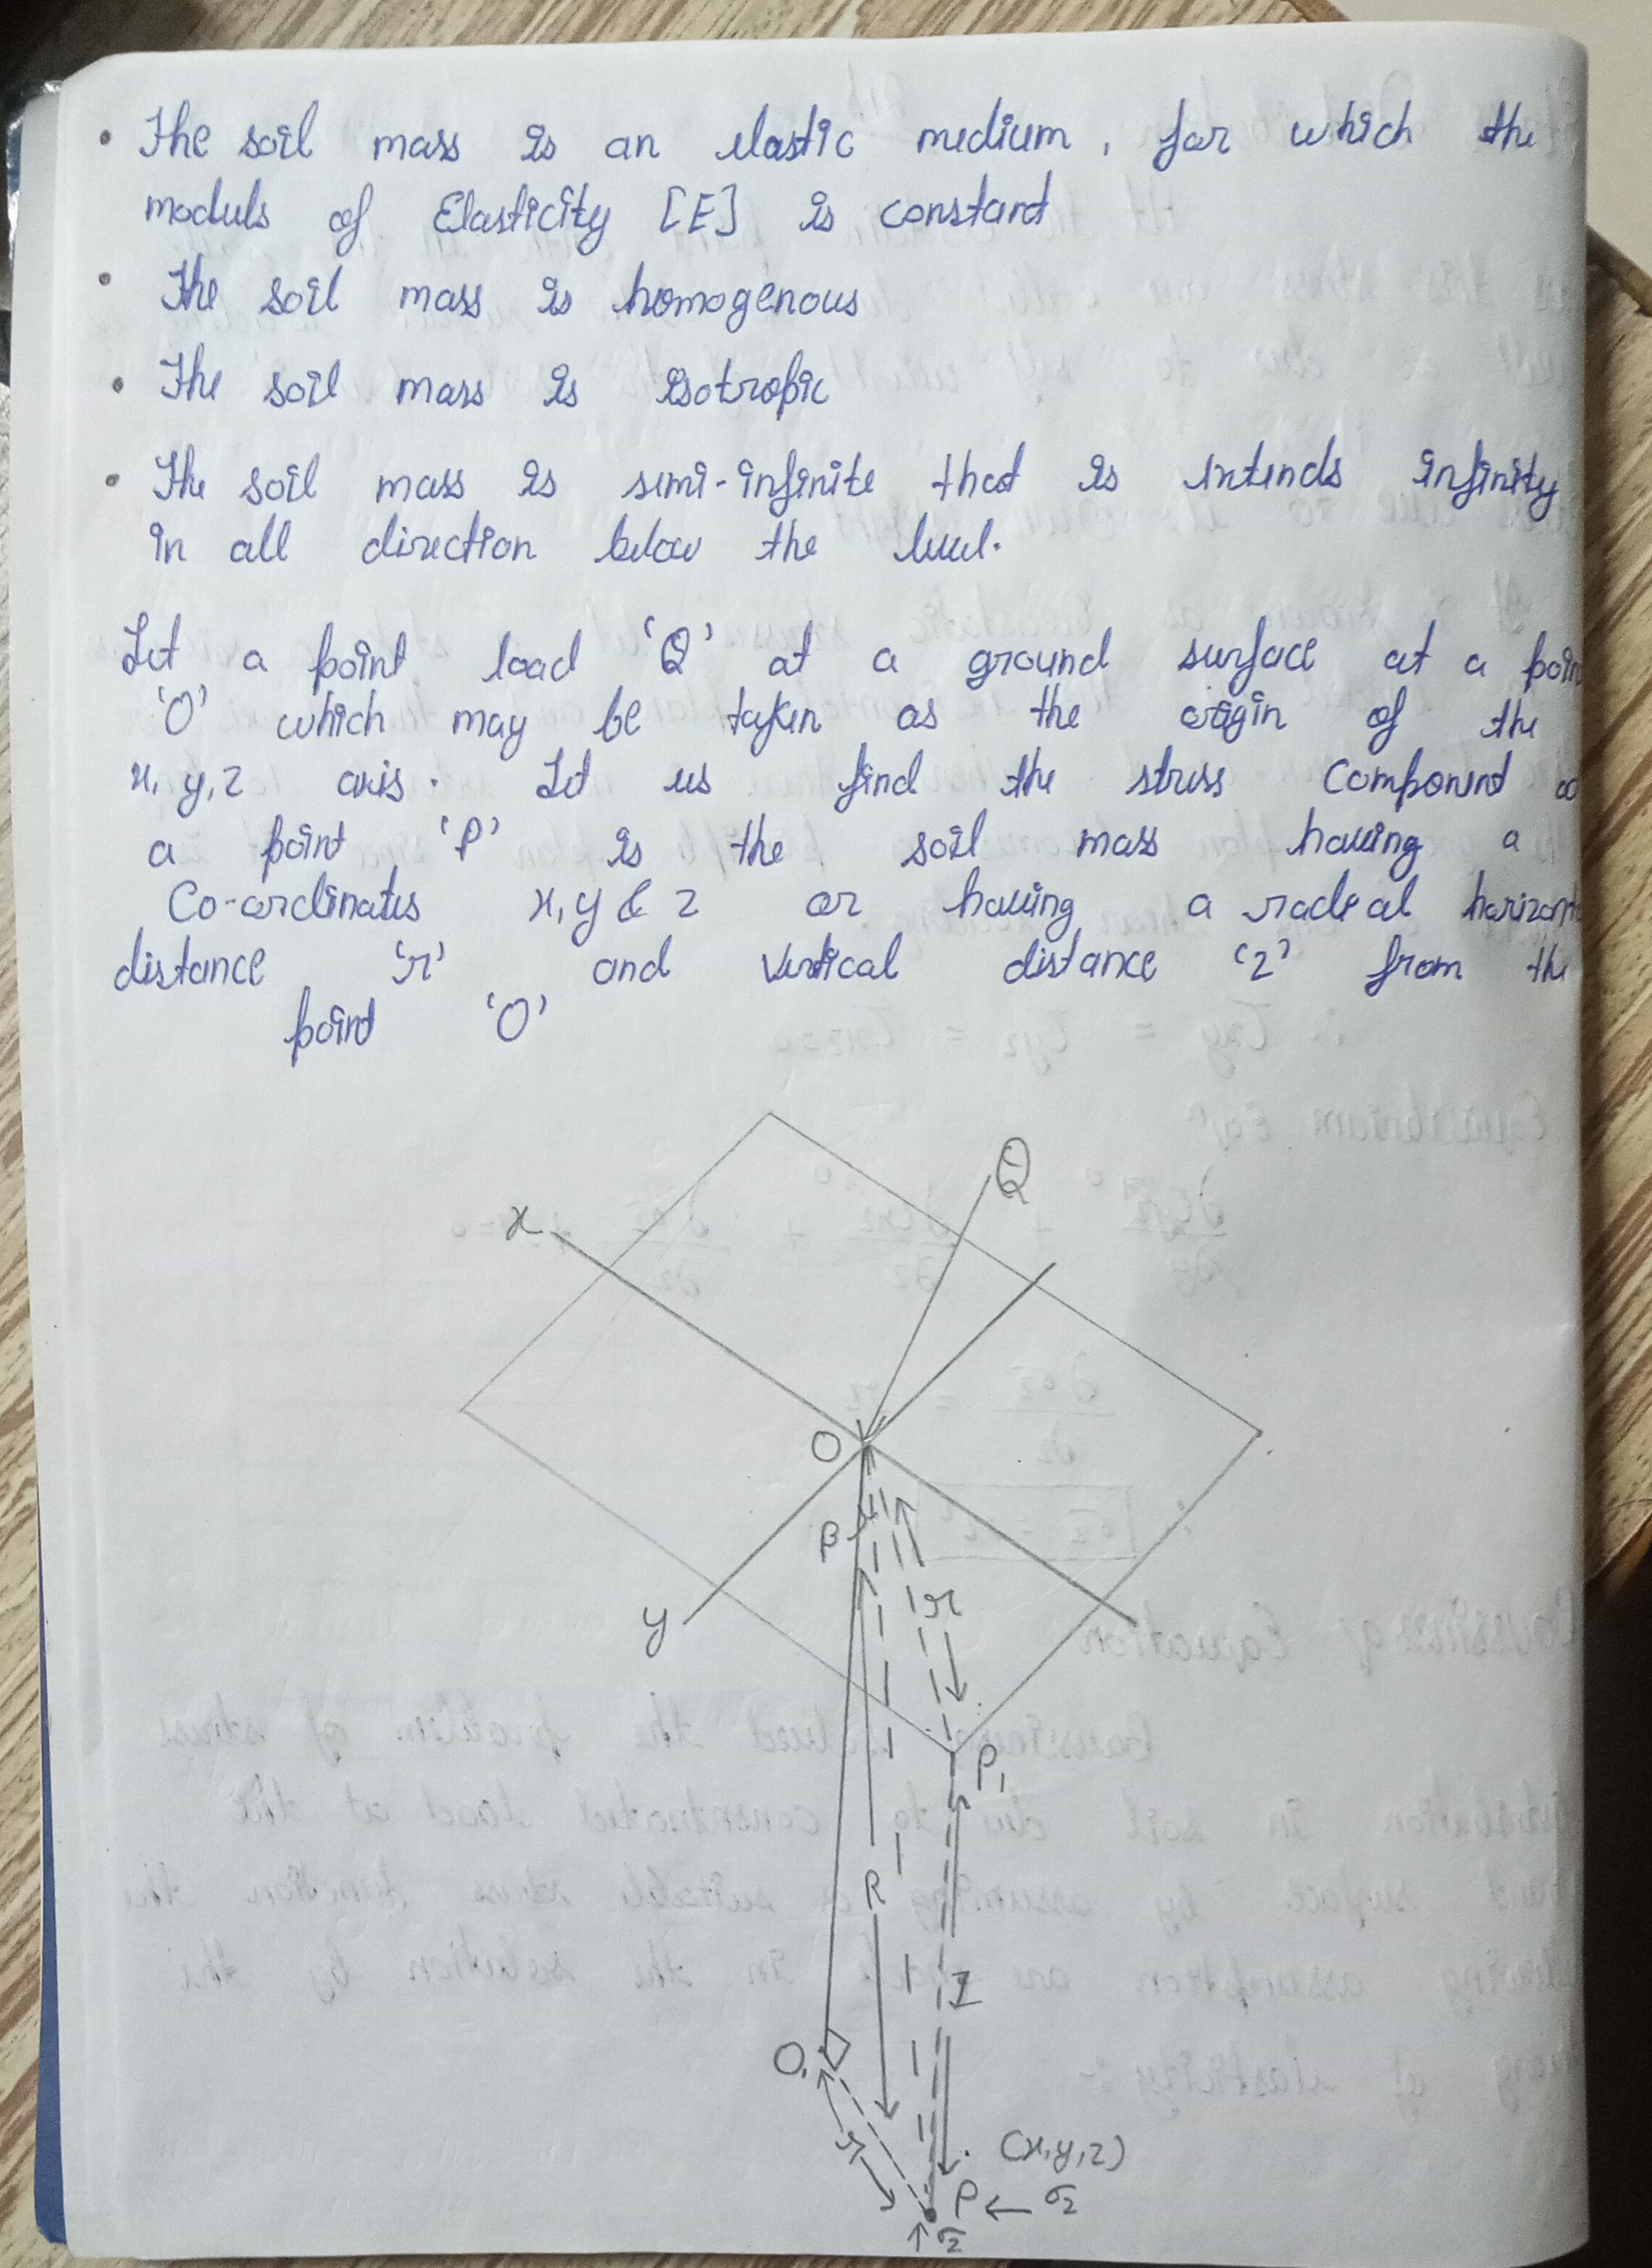 • The soil mass is an elastic medium, for which the
moduls of Elasticity [E] is constant
• The soil mass is homogenous
• The soil mass is isotropic
• The soil mass is semi-infinite that is extends infinity
in all direction below the level.
Let a point load 'Q' at a ground surface at a poin
'O' which may be taken as the origin of the
x, y, z axis. Let us find the stress component
a point 'P' is the soil mass having a
Co-ordinates x, y & z or having a radial horizont
distance 'r' and vertical distance 'z' from the
point 'O'
Q
x
O
β
r
y
P₁
R
Z
O₁
(x, y, z)
r
P ← σz
↑ σz